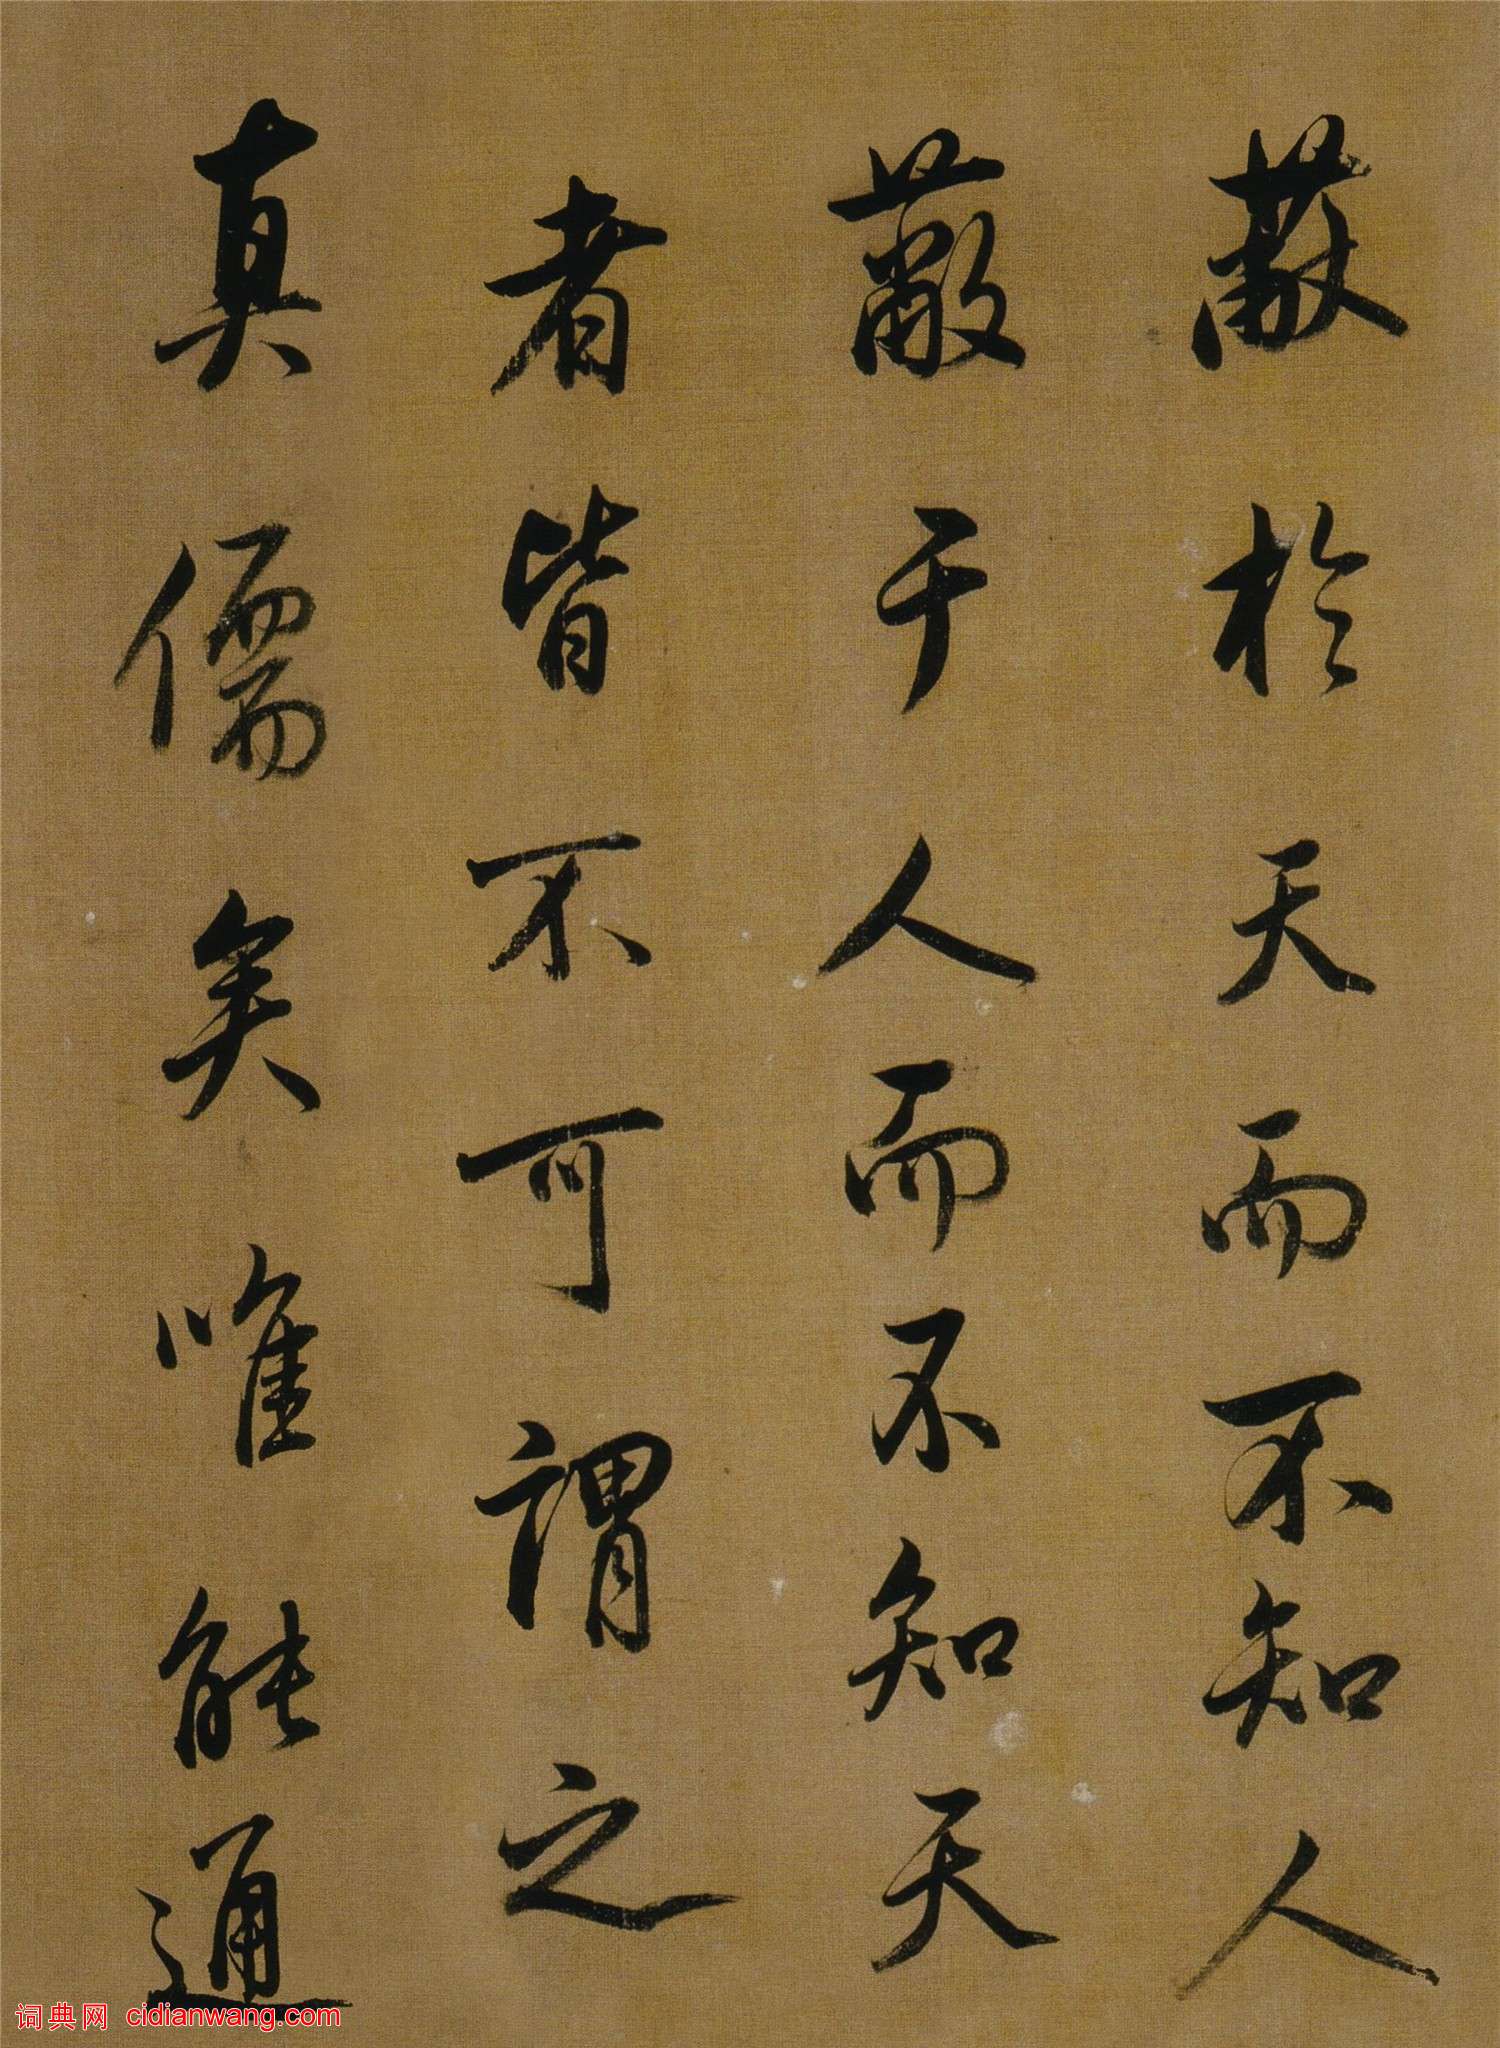 蔽於天而不知人
蔽于人而不知天
者皆不可謂之
真儒矣唯能通
词典网 cidianwang.com